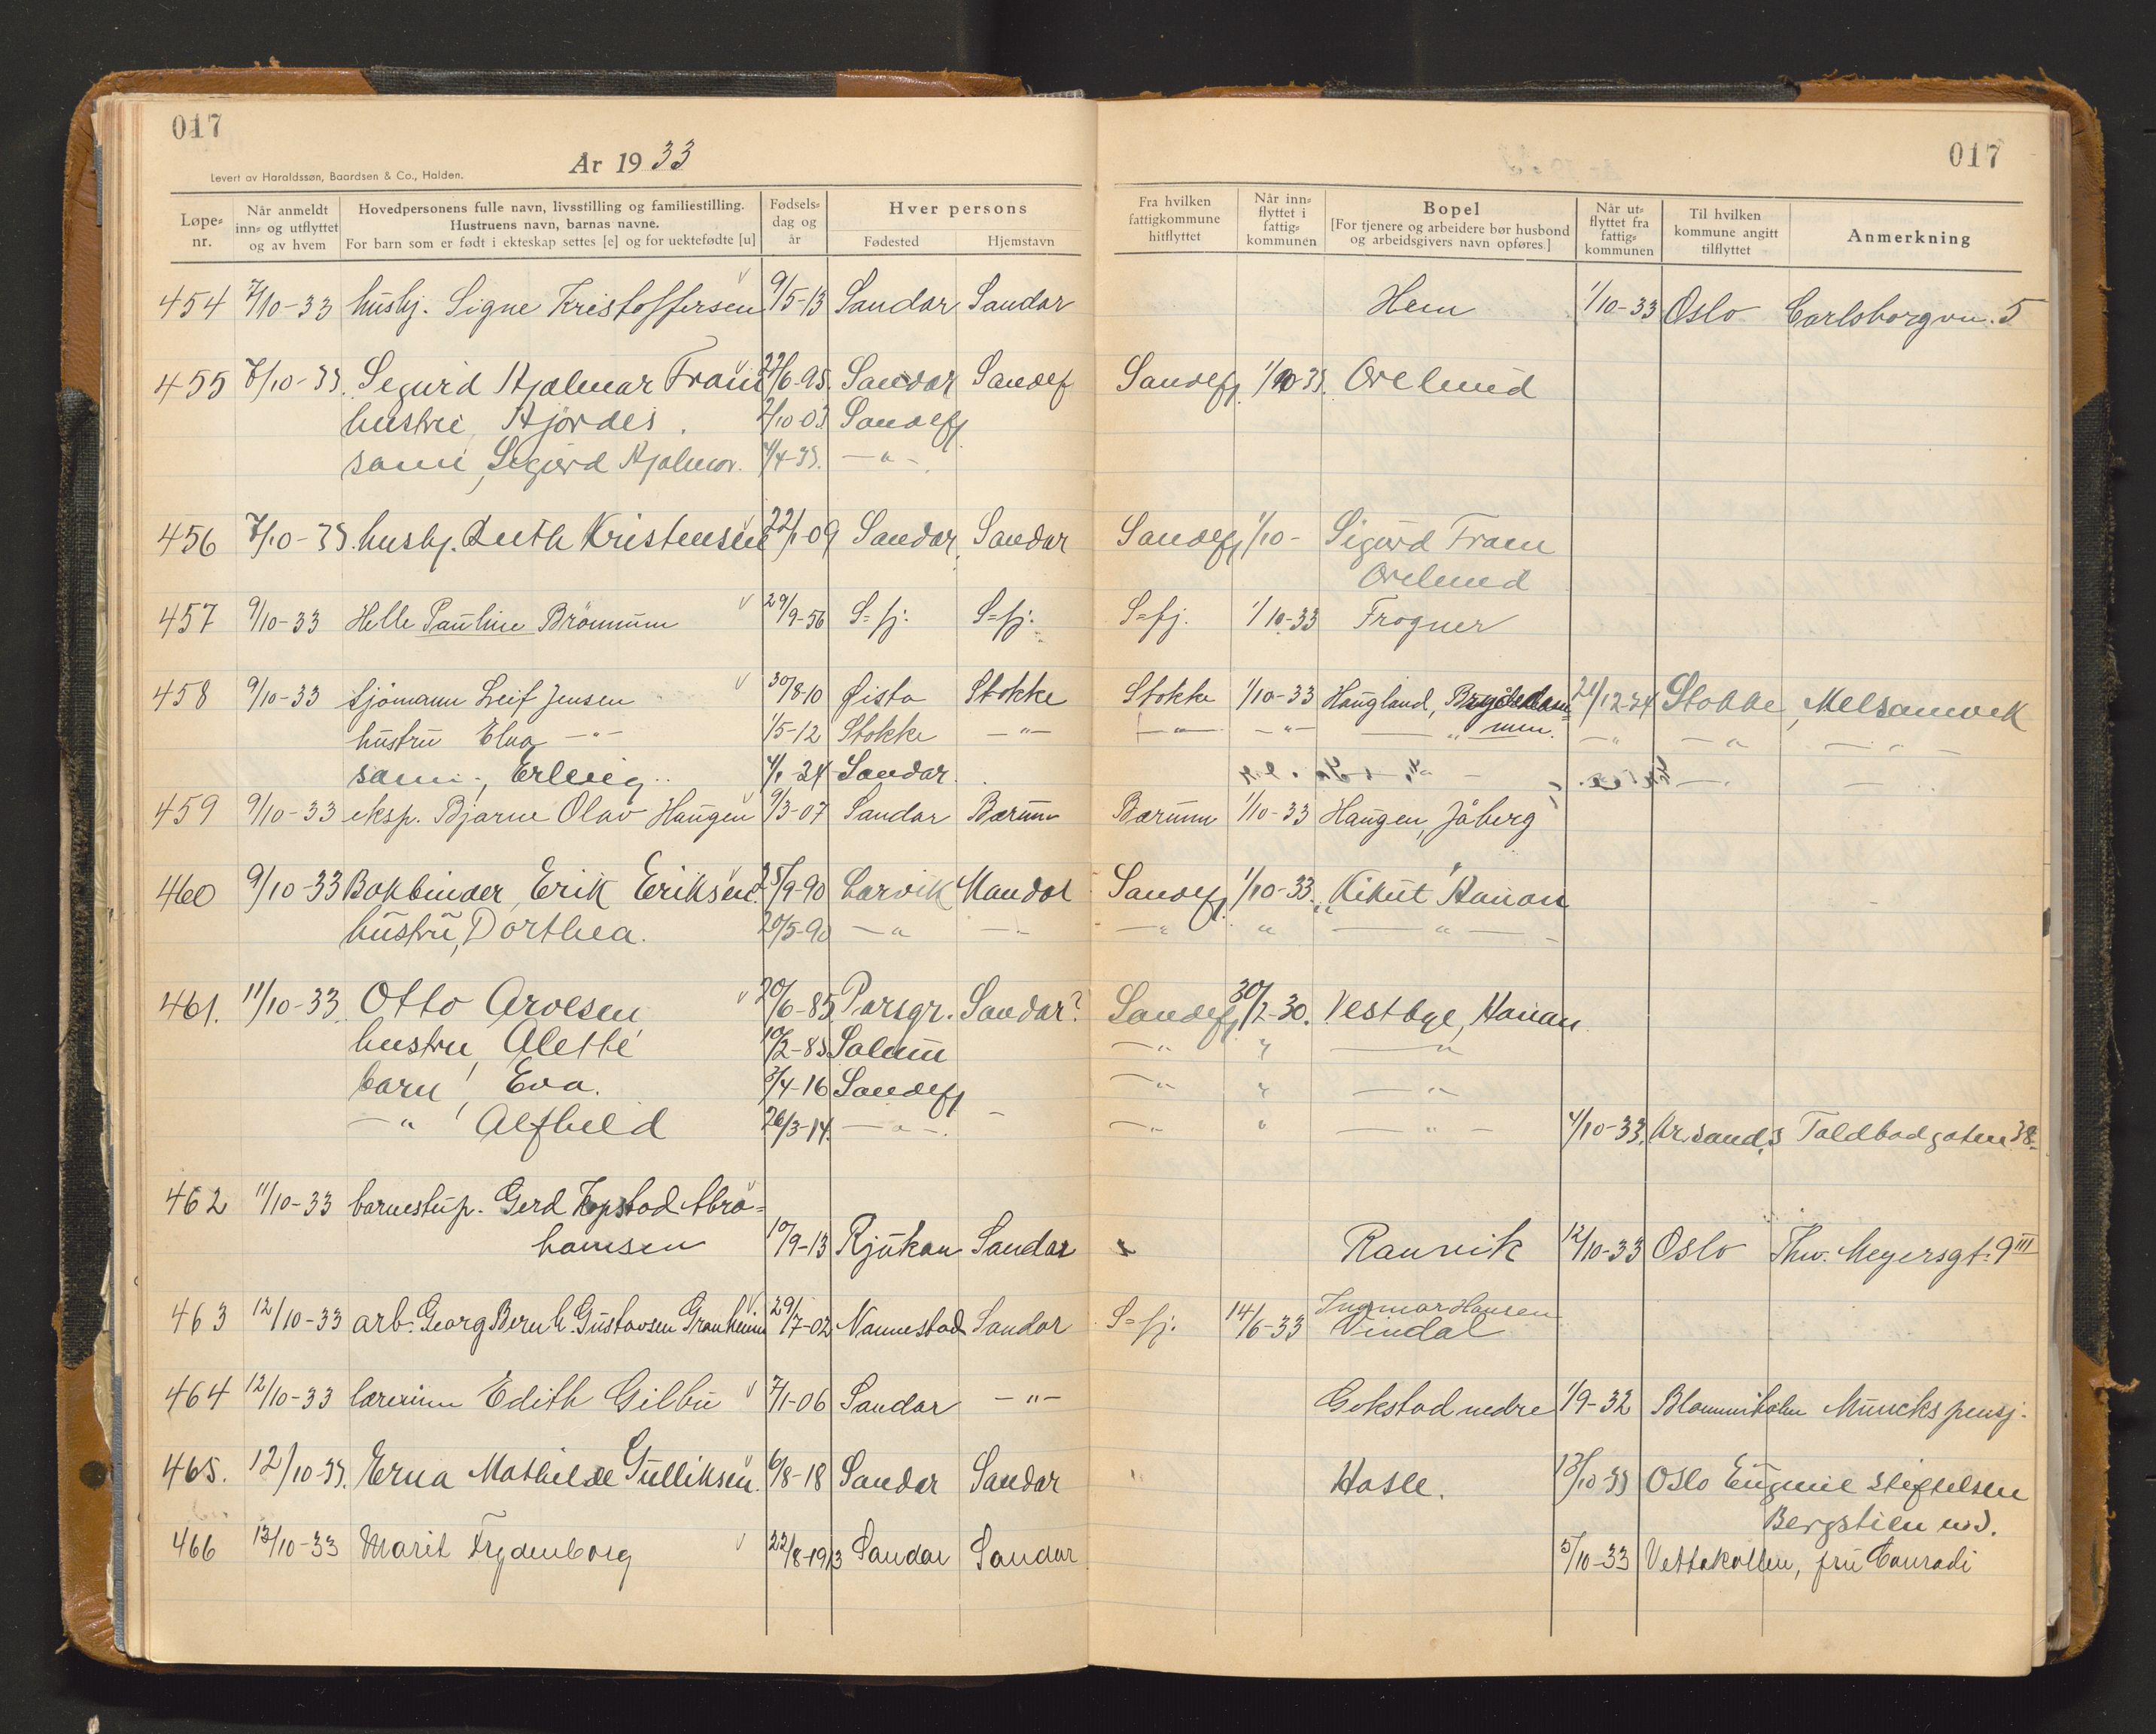 017
År 1933
Levert av Haraldssøn, Baardsen & Co., Halden.
017
Løpe-nr. Når anmeldt inn- og utflyttet og av hvem Hovedpersonens fulle navn, livsstilling og familiestilling. Hustruens navn, barnas navne. For barn som er født i ekteskap settes [e] og for uektefødte [u] Fødsels-dag og år Hver persons Fødested Hjemstavn Fra hvilken fattigkommune hitflyttet Når inn-flyttet i fattig-kommunen Bopel [For tjenere og arbeidere bør husbond og arbeidsgivers navn opføres.] Når ut-flyttet fra fattig-kommunen Til hvilken kommune angitt tilflyttet Anmerkning
454 7/10-33 hushj. Signe Kristoffersen 9/5-13 Sandar Sandar Hem 1/10-33 Oslo Carlsborgvn. 5
455 7/10-33. Sigurd Hjalmar Fram 22/6-95. Sandar Sandef Sandefj 1/10-33. Orelund
hustru, Hjørdis. 2/10-03 Sandefj
sønn, Sigurd Hjalmar. 4/4-33. —"—
456 7/10-33. hushj. Ruth Kristensen 22/1-09 Sandar Sandar Sandefj 1/10- Sigurd Fram
Orelund
457 9/10-33 Helle Pauline Brønnum 29/9-56 S=fj. S=fj. S=fj. 1/10-33 Frogner
458 9/10-33 sjømann Leif Jensen 30/8-10 Stokke Stokke 1/10-33 Haugland, 21/12-34 Stokke, Melsomvik
hustru Elna —"— 1/5-12 Stokke —"— —"— —"— —"— —"— —"— —"—
sønn, Erling 4/1-34 Sandar.
459 9/10-33 eksp. Bjarne Olav Haugen 9/3-07 Sandar Bærum Bærum 1/10-33 Haugen, Jåberg
460 9/10-33 Bokbinder, Erik Eriksen. 25/9-90 Larvik Mandal Sandefj 1/10-33. "Kikut" Hauan
hustru, Dorthea. 20/5-90 —"— —"— —"— " —"—
461. 11/10-33. Otto Arvesen 20/6-85 Porsgr. Sandar? Sandefj 30/12-30. Vestbye, Hauan
hustru, Alette 10/2-85 Solum —"— " —"—
barn, Eva. 3/4-16 Sandefj —"— " —"—
—"—, Alfhild 26/3-14. —"— —"— " —"— 4/10-33. Kr.sand.s Toldbodgaten 38.
462 11/10-33 barnestup. Gerd Kopstad Abra-
hamsen 10/9-13 Rjukan Sandar Ranvik 12/10-33 Oslo Thv. Meyersgt. 9 III
463 12/10-33 arb. Georg Bernh. Gustavsen Granheim 29/7-02 Nannestad Sandar S=fj. 14/6-33 Ingmar Hansen
Vindal
464 12/10-33 lærerinne Edith Gilbu 7/1-06 Sandar —"— Gokstad nedre 1/9-32 Blommenholm Muncks pensj.
465. 12/10-33. Erna Mathilde Gulliksen. 6/8-18 Sandar Sandar Hasle. 13/10-33 Oslo Eugenie stiftelsen
Bergstien
466 13/10-33 Marit Frydenborg 22/8-1913 Sandar Sandar 5/10-33 Vettakollen, fru Conradi